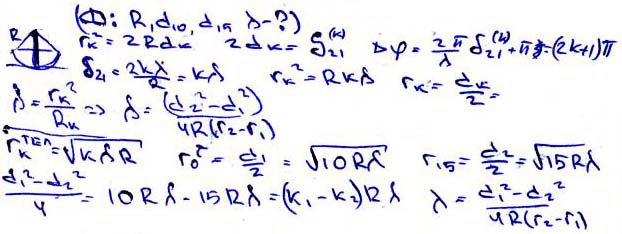 (Ф: R, d₁₀, d₁₅, λ-?)
R
r_k² = 2Rd_k 2d_k = δ₂₁^(k) Δφ = 2π/λ δ₂₁^(k) + π = (2k+1)π
δ₂₁ = 2kλ/2 = kλ r_k² = Rkλ r_k = d_k/2 =
λ = r_k²/Rk => λ = (d₂² - d₁²)/4R(r₂-r₁)
r_k^тёл = √kλR r₀^τ = d₁/2 = √10Rλ r₁₅ = d₂/2 = √15Rλ
d₁² - d₂²/4 = 10Rλ - 15Rλ = (k₁ - k₂)Rλ λ = d₁² - d₂²/4R(r₂-r₁)